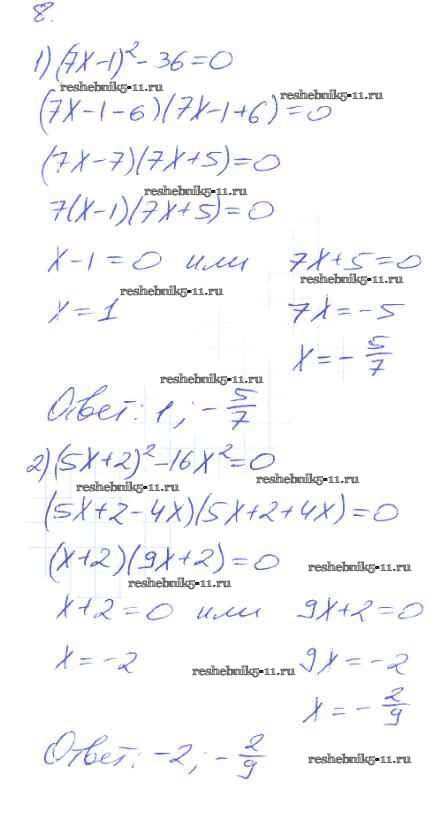 8.
1) (7x-1)² - 36 = 0
reshebnik5-11.ru
reshebnik5-11.ru
(7x-1-6)(7x-1+6) = 0
(7x-7)(7x+5) = 0
reshebnik5-11.ru
7(x-1)(7x+5) = 0
x-1 = 0 или 7x+5 = 0
reshebnik5-11.ru
reshebnik5-11.ru
x = 1 7x = -5
x = -5/7
reshebnik5-11.ru
Ответ: 1; -5/7
2) (5x+2)² - 16x² = 0
reshebnik5-11.ru
reshebnik5-11.ru
(5x+2-4x)(5x+2+4x) = 0
(x+2)(9x+2) = 0
reshebnik5-11.ru
reshebnik5-11.ru
x+2 = 0 или 9x+2 = 0
x = -2 9x = -2
reshebnik5-11.ru
x = -2/9
Ответ: -2; -2/9
reshebnik5-11.ru